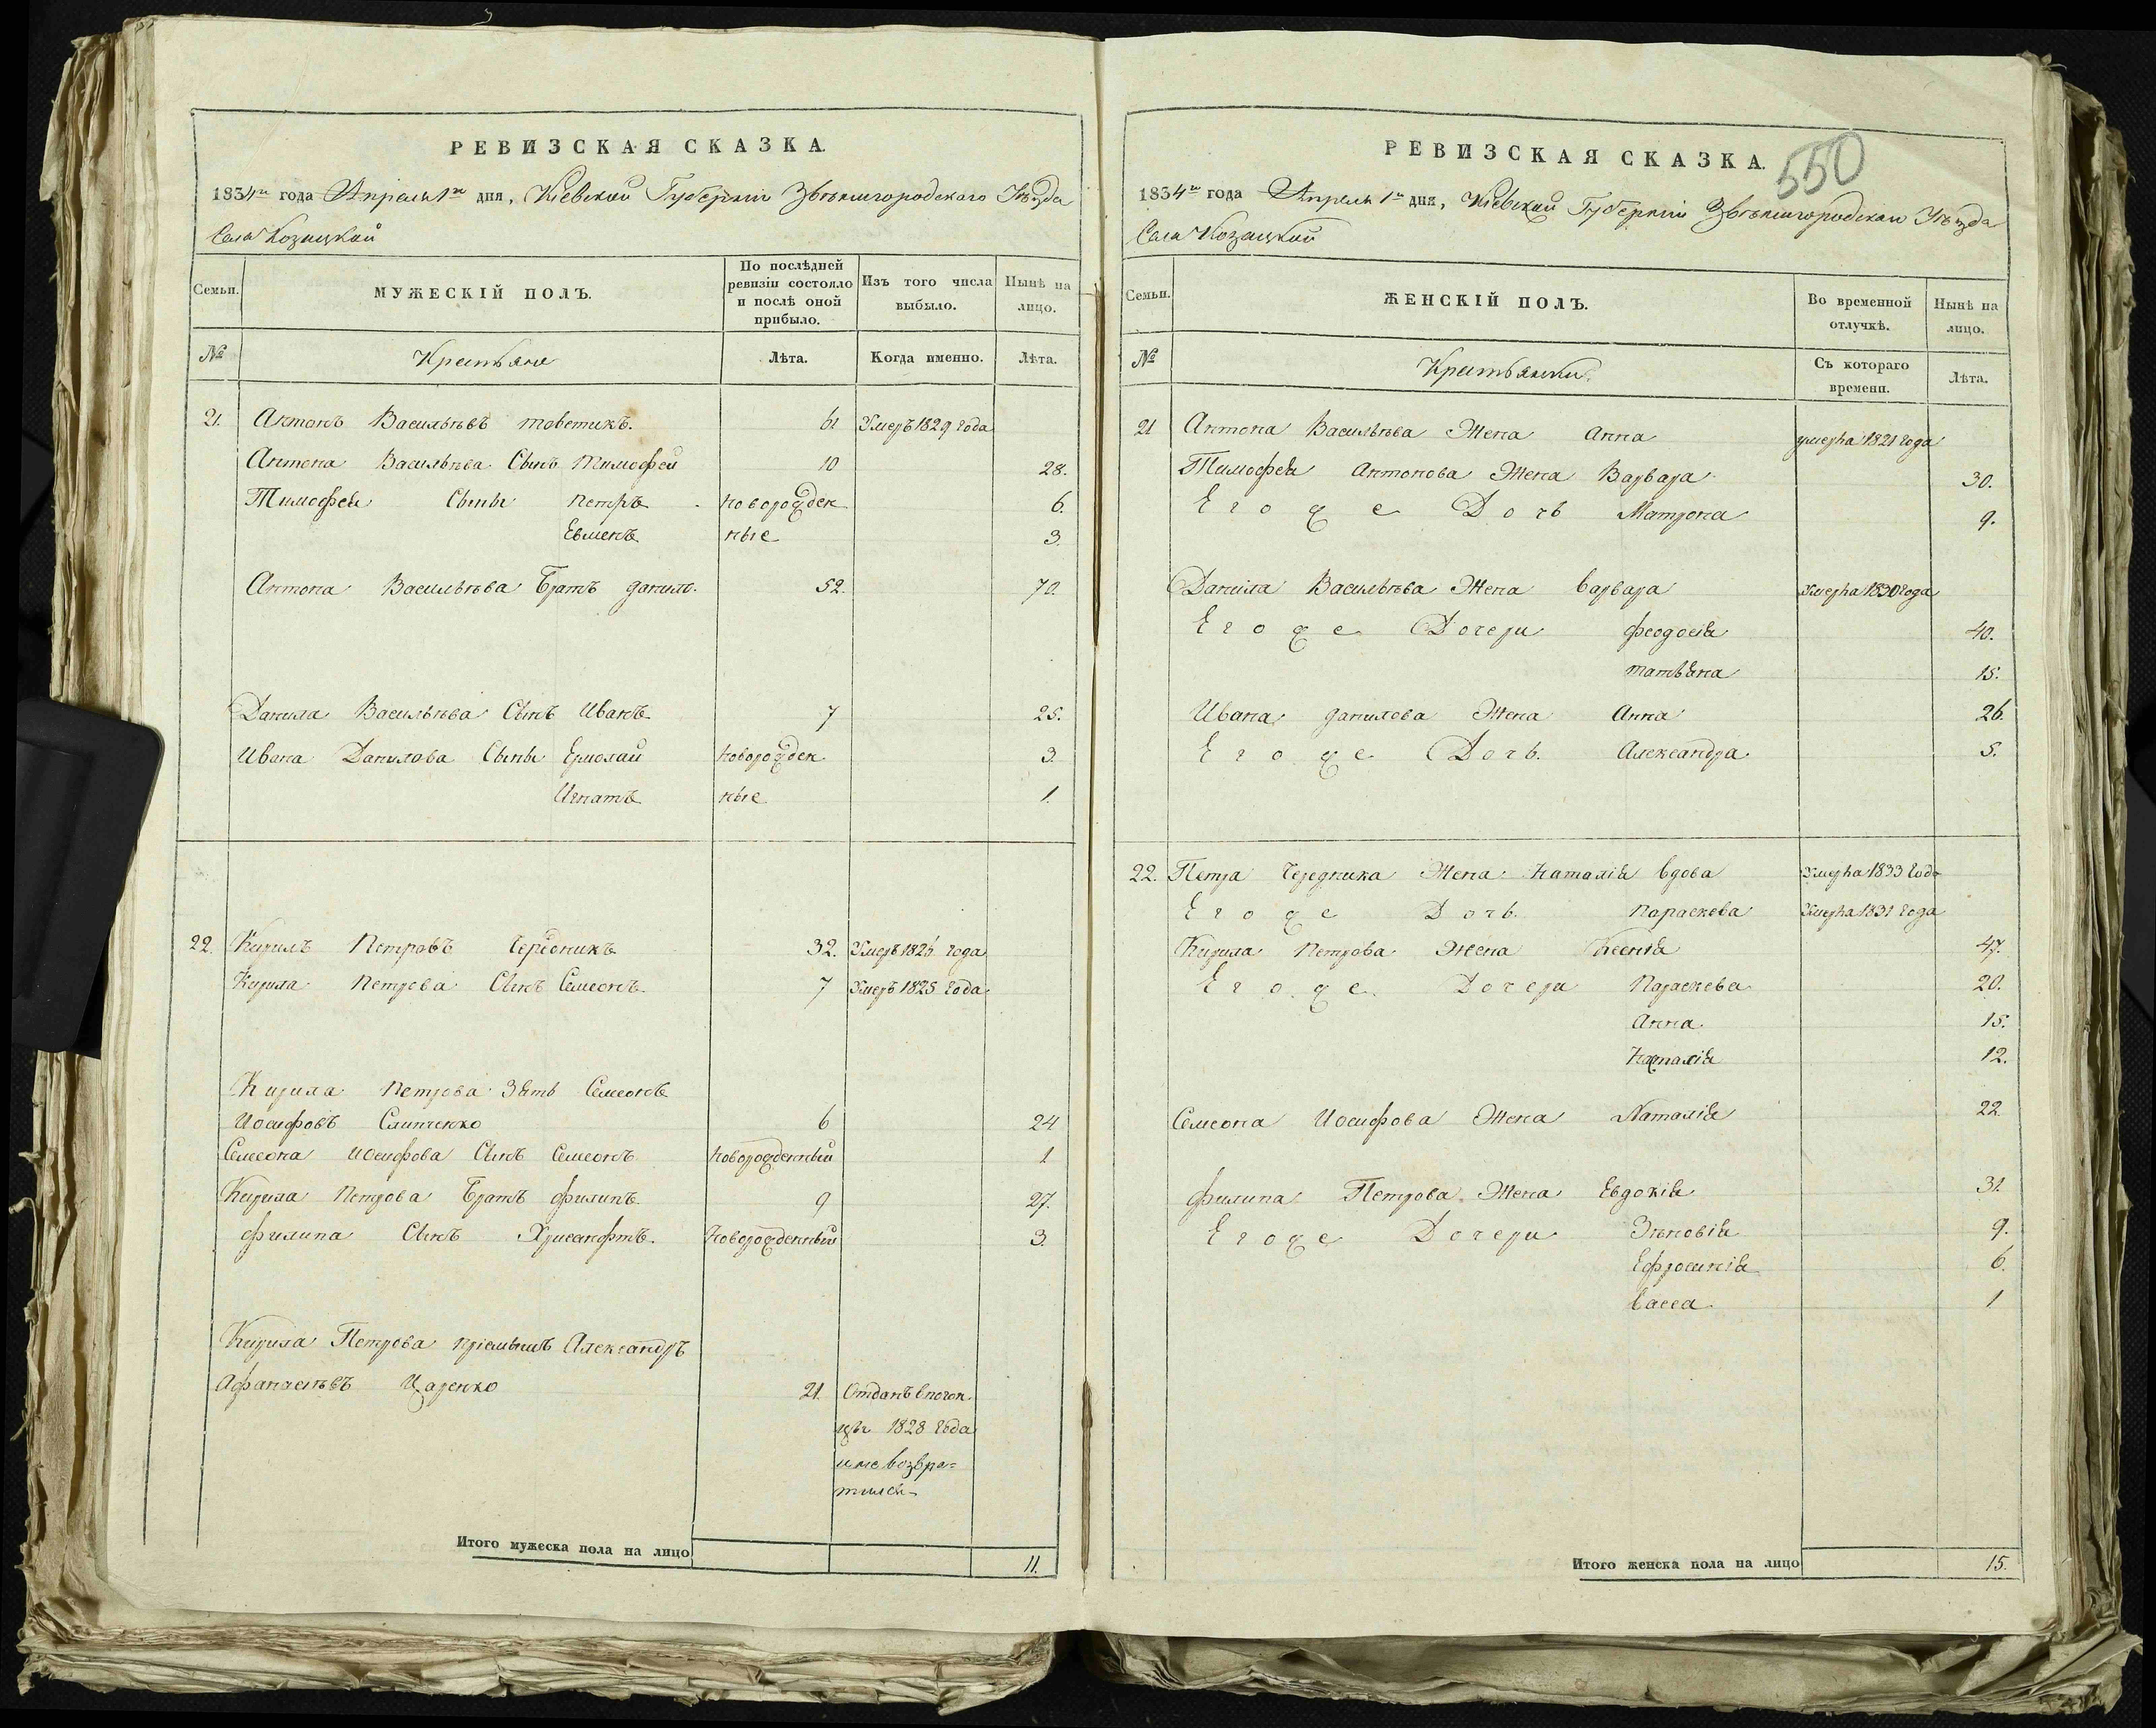 РЕВИЗСКАЯ СКАЗКА.
1834го года Апреля 1го дня, Кіевской Губерніи Звѣнигородскаго Уѣзда
Села Козацкой
Семьи.
МУЖЕСКІЙ ПОЛЪ.
По послѣдней ревизіи состояло и послѣ оной прибыло.
Изъ того числа выбыло.
Нынѣ на лицо.
№
Крестьяне
Лѣта.
Когда именно.
Лѣта.
21. Антонъ Васильѣвъ товстикъ. 61 Умеръ 1829 года
Антона Васильѣва Сынъ Тимофей 10 28.
Тимофея Сыны Петръ новорожден 6.
Евменъ ные 3.
Антона Васильѣва Братъ данило. 52. 70.
Данила Васильѣва Сынъ Иванъ 7 25.
Ивана Данилова Сыны Ермолай новорожден 3.
Игнатъ ные 1.
22. Кирилъ Петровъ Чередникъ 32. Умеръ года
Кирила Петрова Сынъ Семеонъ 7 Умеръ 1825 года
Кирила Петрова Зять Семеонъ
Иосифовъ 6 24
Семеона иосифова Сынъ Семеонъ новорожденный 1
Кирила Петрова Братъ филипъ 9 27.
филипа Сынъ Хрисанфтъ. Новорожденный 3.
Кирила Петрова пріемышъ Александръ
Афанасіѣвъ Царенко 21. Отданъ в погон
цы 1828 года
и не возвра=
тился
Итого мужеска пола на лицо 11.
РЕВИЗСКАЯ СКАЗКА.
550
1834го года Апреля 1го дня, Кіевской Губерніи Звѣнигородскаго Уѣзда
Села Козацкой
Семьи.
ЖЕНСКІЙ ПОЛЪ.
Во временной отлучкѣ.
Нынѣ на лицо.
№
Крестьянки.
Съ котораго времени.
Лѣта.
21 Антона Васильѣва Жена Анна умерла 1821 года
Тимофея Антонова Жена Варвара 30.
Егоже Дочь Матрона 9.
Данила Васильѣва Жена Варвара Умерла 1830 года
Егоже Дочери феодосія 40.
татьяна 15.
Ивана данилова Жена Анна 26.
Егоже Дочь. Александра 5.
22. Петра Чередника Жена Наталія вдова Умерла 1833 года
Егоже Дочь. Параскева Умерла 1831 года
Кирила Петрова Жена Ксенія 47.
Егоже Дочери Параскева 20.
Анна 15.
Наталія 12.
Семеона Иосифова Жена Наталія 22
филипа Петрова Жена Евдокія 31.
Егоже Дочери Зѣновія 9.
Ефросинія 6.
Васса 1
Итого женска пола на лицо 15.